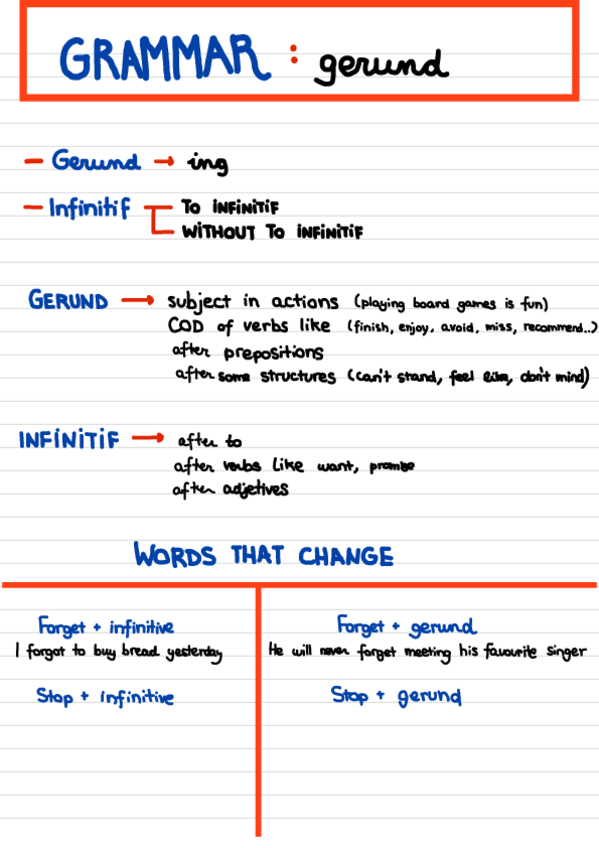 GRAMMAR : gerund
- Gerund → ing
- Infinitif TO INFINITIF
WITHOUT TO INFINITIF
GERUND → subject in actions (playing board games is fun)
COD of verbs like (finish, enjoy, avoid, miss, recommend..)
after prepositions
after some structures (can't stand, feel like, don't mind)
INFINITIF → after to
after verbs like want, promise
after adjetives
WORDS THAT CHANGE
Forget + infinitive
I forgot to buy bread yesterday
Forget + gerund
He will never forget meeting his favourite singer
Stop + infinitive
Stop + gerund